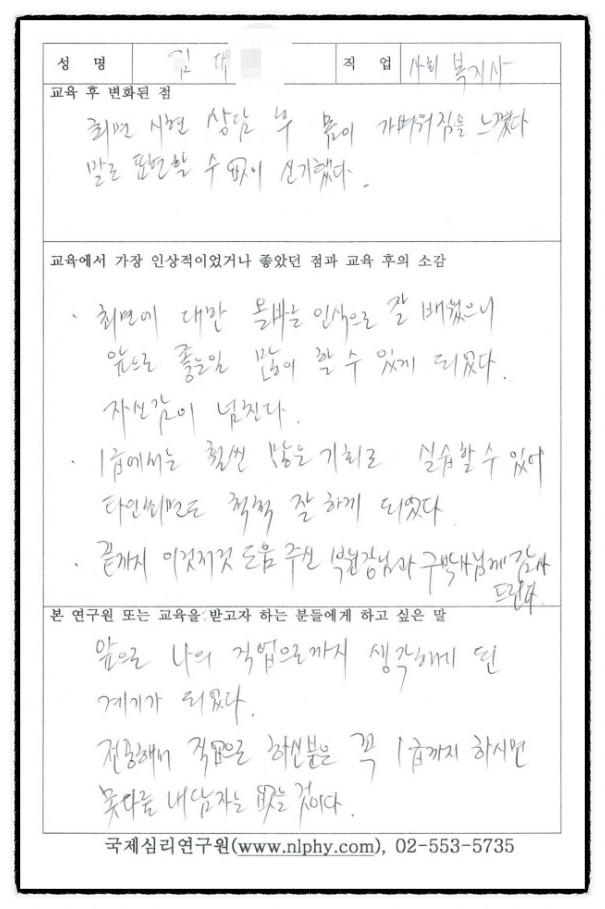 성 명 김 대 직 업 사회 복지사
교육 후 변화된 점
최면 시현 상담 후 몸이 가벼워짐을 느꼈다
말로 표현할 수 없이 신기했다.
교육에서 가장 인상적이었거나 좋았던 점과 교육 후의 소감
· 최면에 대한 올바른 인식으로 잘 배웠으니
앞으로 좋은일 많이 할 수 있게 되었다.
자신감이 넘친다.
· 1급에서는 훨씬 많은 기회로 실습할 수 있어
타인최면도 척척 잘 하게 되었다
· 끝까지 이것저것 도움 주신 부원장님과 구박사님께 감사
드린다.
본 연구원 또는 교육을 받고자 하는 분들에게 하고 싶은 말
앞으로 나의 직업으로까지 생각해게 된
계기가 되었다.
전종해서 직업으로 하신분은 꼭 1급까지 하시면
못다룰 내담자는 없는 것이다.
국제심리연구원(www.nlphy.com), 02-553-5735